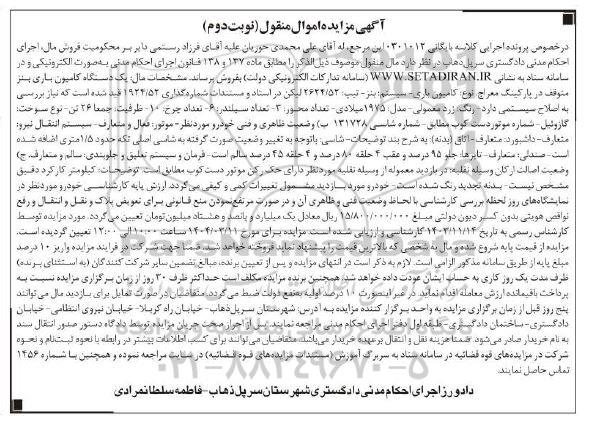 آگهی مزایده اموال منقول (نوبت دوم)
درخصوص پرونده اجرایی کلاسه بایگانی ۰۳۰۱۰۱۲ این مرجع، له آقای علی محمدی حوریان علیه آقای فرزاد رستمی دایر بر محکومیت فروش مال، اجرای
احکام مدنی دادگستری سرپل‌ذهاب در نظر دارد مال منقول موصوف ذیل‌الذکر را مطابق ماده ۱۳۷ و ۱۳۸ قانون اجرای احکام مدنی به‌صورت الکترونیکی و در
سامانه ستاد به نشانی WWW.SETADIRAN.IR (سامانه تدارکات الکترونیکی دولت) بفروش برساند. مشخصات مال: یک دستگاه کامیون باری بنز
متوقف در پارکینگ معراج. نوع: کامیون باری- سیستم: بنز- تیپ: ۲۶۲۴/۵۲ لیکن در اسناد و مستندات شماره‌گذاری ۱۹۲۴/۵۲ قید شده است که نیاز بررسی
به اصلاح سیستمی دارد- رنگ: زرد معمولی- مدل: ۱۹۷۵میلادی- تعداد محور: ۳- تعداد سیلندر: ۶- تعداد چرخ: ۱۰- ظرفیت: جمعا ۲۶ تن- نوع سوخت:
گازوئیل- شماره موتور دست کوب مطابق- شماره شاسی ۱۳۱۷۲۸ ب) وضعیت ظاهری و فنی خودرو موردنظر- موتور: فعال و متعارف- سیستم انتقال نیرو:
متعارف- داشبورد: متعارف- اتاق (بدنه): به شرح بند توضیحات- شاسی: باتوجه به تغییر وضعیت صورت گرفته به شاسی اصلی تکه حدود ۱/۵متری اضافه شده
است- صندلی: متعارف- تایرها: جلو ۹۵ درصد و عقب ۴ حلقه ۸۰ درصد و ۴ حلقه ۴۵ درصد سالم است- فرمان و سیستم تعلیق و جلوبندی: سالم و متعارف. ج)
وضعیت اصالت ارکان وسیله نقلیه: در بازدید معموله از وسیله نقلیه موردنظر دارای حک رکن موتور دست کوب مطابق است. توضیحات: کیلومتر کارکرد دقیق
مشخص نیست- بدنه تجدید رنگ شده است- خودرو مورد بازدید مشمول تغییرات کمی و کیفی می‌گردد. ارزش پایه کارشناسی خودرو موردنظر در
نمایشگاه‌های روز لحظه بررسی کارشناسی با لحاظ وضعیت فنی و ظاهری آن و در صورت مرتفع نمودن منع قانونی برای تعویض پلاک و نقل و انتقال و رفع
نواقص هویتی بدون کسر دیون دولتی مبلغ ۱۵/۸۰۰/۰۰۰/۰۰۰ ریال معادل یک میلیارد و پانصد و هشتاد میلیون‌تومان تعیین می‌گردد. مورد مزایده توسط
کارشناس رسمی به تاریخ ۱۴۰۳/۱۱/۱۴ کارشناسی و ارزیابی شده است. مزایده برای مورخ ۱۴۰۴/۰۳/۱۱ ساعت ۱۰:۰۰ الی ۱۲:۰۰ تعیین گردیده است.
مزایده از قیمت پایه شروع شده و مال به شخصی که بالاترین قیمت را پیشنهاد نماید فروخته خواهد شد. ضمنا جهت شرکت در فرآیند مزایده واریز ۱۰ درصد
مبلغ پایه از طریق سامانه مذکور الزامی است. لازم به ذکر است در انتهای مزایده و پس از تعیین برنده، مبالغ تضمین سایر شرکت‌کنندگان (به استثنای برنده)
ظرف مدت یک روز کاری به حساب ایشان عودت داده خواهد شد. همچنین برنده مزایده مکلف است حداکثر ظرف ۳۰ روز از زمان برگزاری مزایده نسبت به
پرداخت باقیمانده ارزش معامله اقدام نماید. در غیر اینصورت ۱۰ درصد اولیه به نفع دولت ضبط می‌گردد. متقاضیان در صورت تمایل برای بازدید مال می‌توانند
پنج روز قبل از زمان برگزاری مزایده به واحد برگزار کننده مزایده به آدرس: شهرستان سرپل‌ذهاب- خیابان راه کربلا- خیابان نیروی انتظامی- خیابان
دادگستری- ساختمان دادگستری- طبقه اول دفتر اجرای احکام مدنی مراجعه نمایند. پس از احراز صحت جریان مزایده توسط دادگاه دستور صدور انتقال سند
به نام خریدار صادر می‌شود. ضمنا هزینه نقل و انتقال برعهده خریدار می‌باشد. متقاضیان می‌توانند برای کسب اطلاعات بیشتر در رابطه با نحوه ثبت‌نام و نحوه
شرکت در مزایده‌های قوه قضائیه در سامانه ستاد به سربرگ آموزش (مستندات مزایده‌های قوه قضائیه) در سایت مراجعه نموده و همچنین با شماره ۱۴۵۶
تماس حاصل نمایند.
دادورز اجرای احکام مدنی دادگستری شهرستان سرپل ذهاب- فاطمه سلطانمرادی
۰۲۱-۸۸۳۴۹۶۷۰-۵